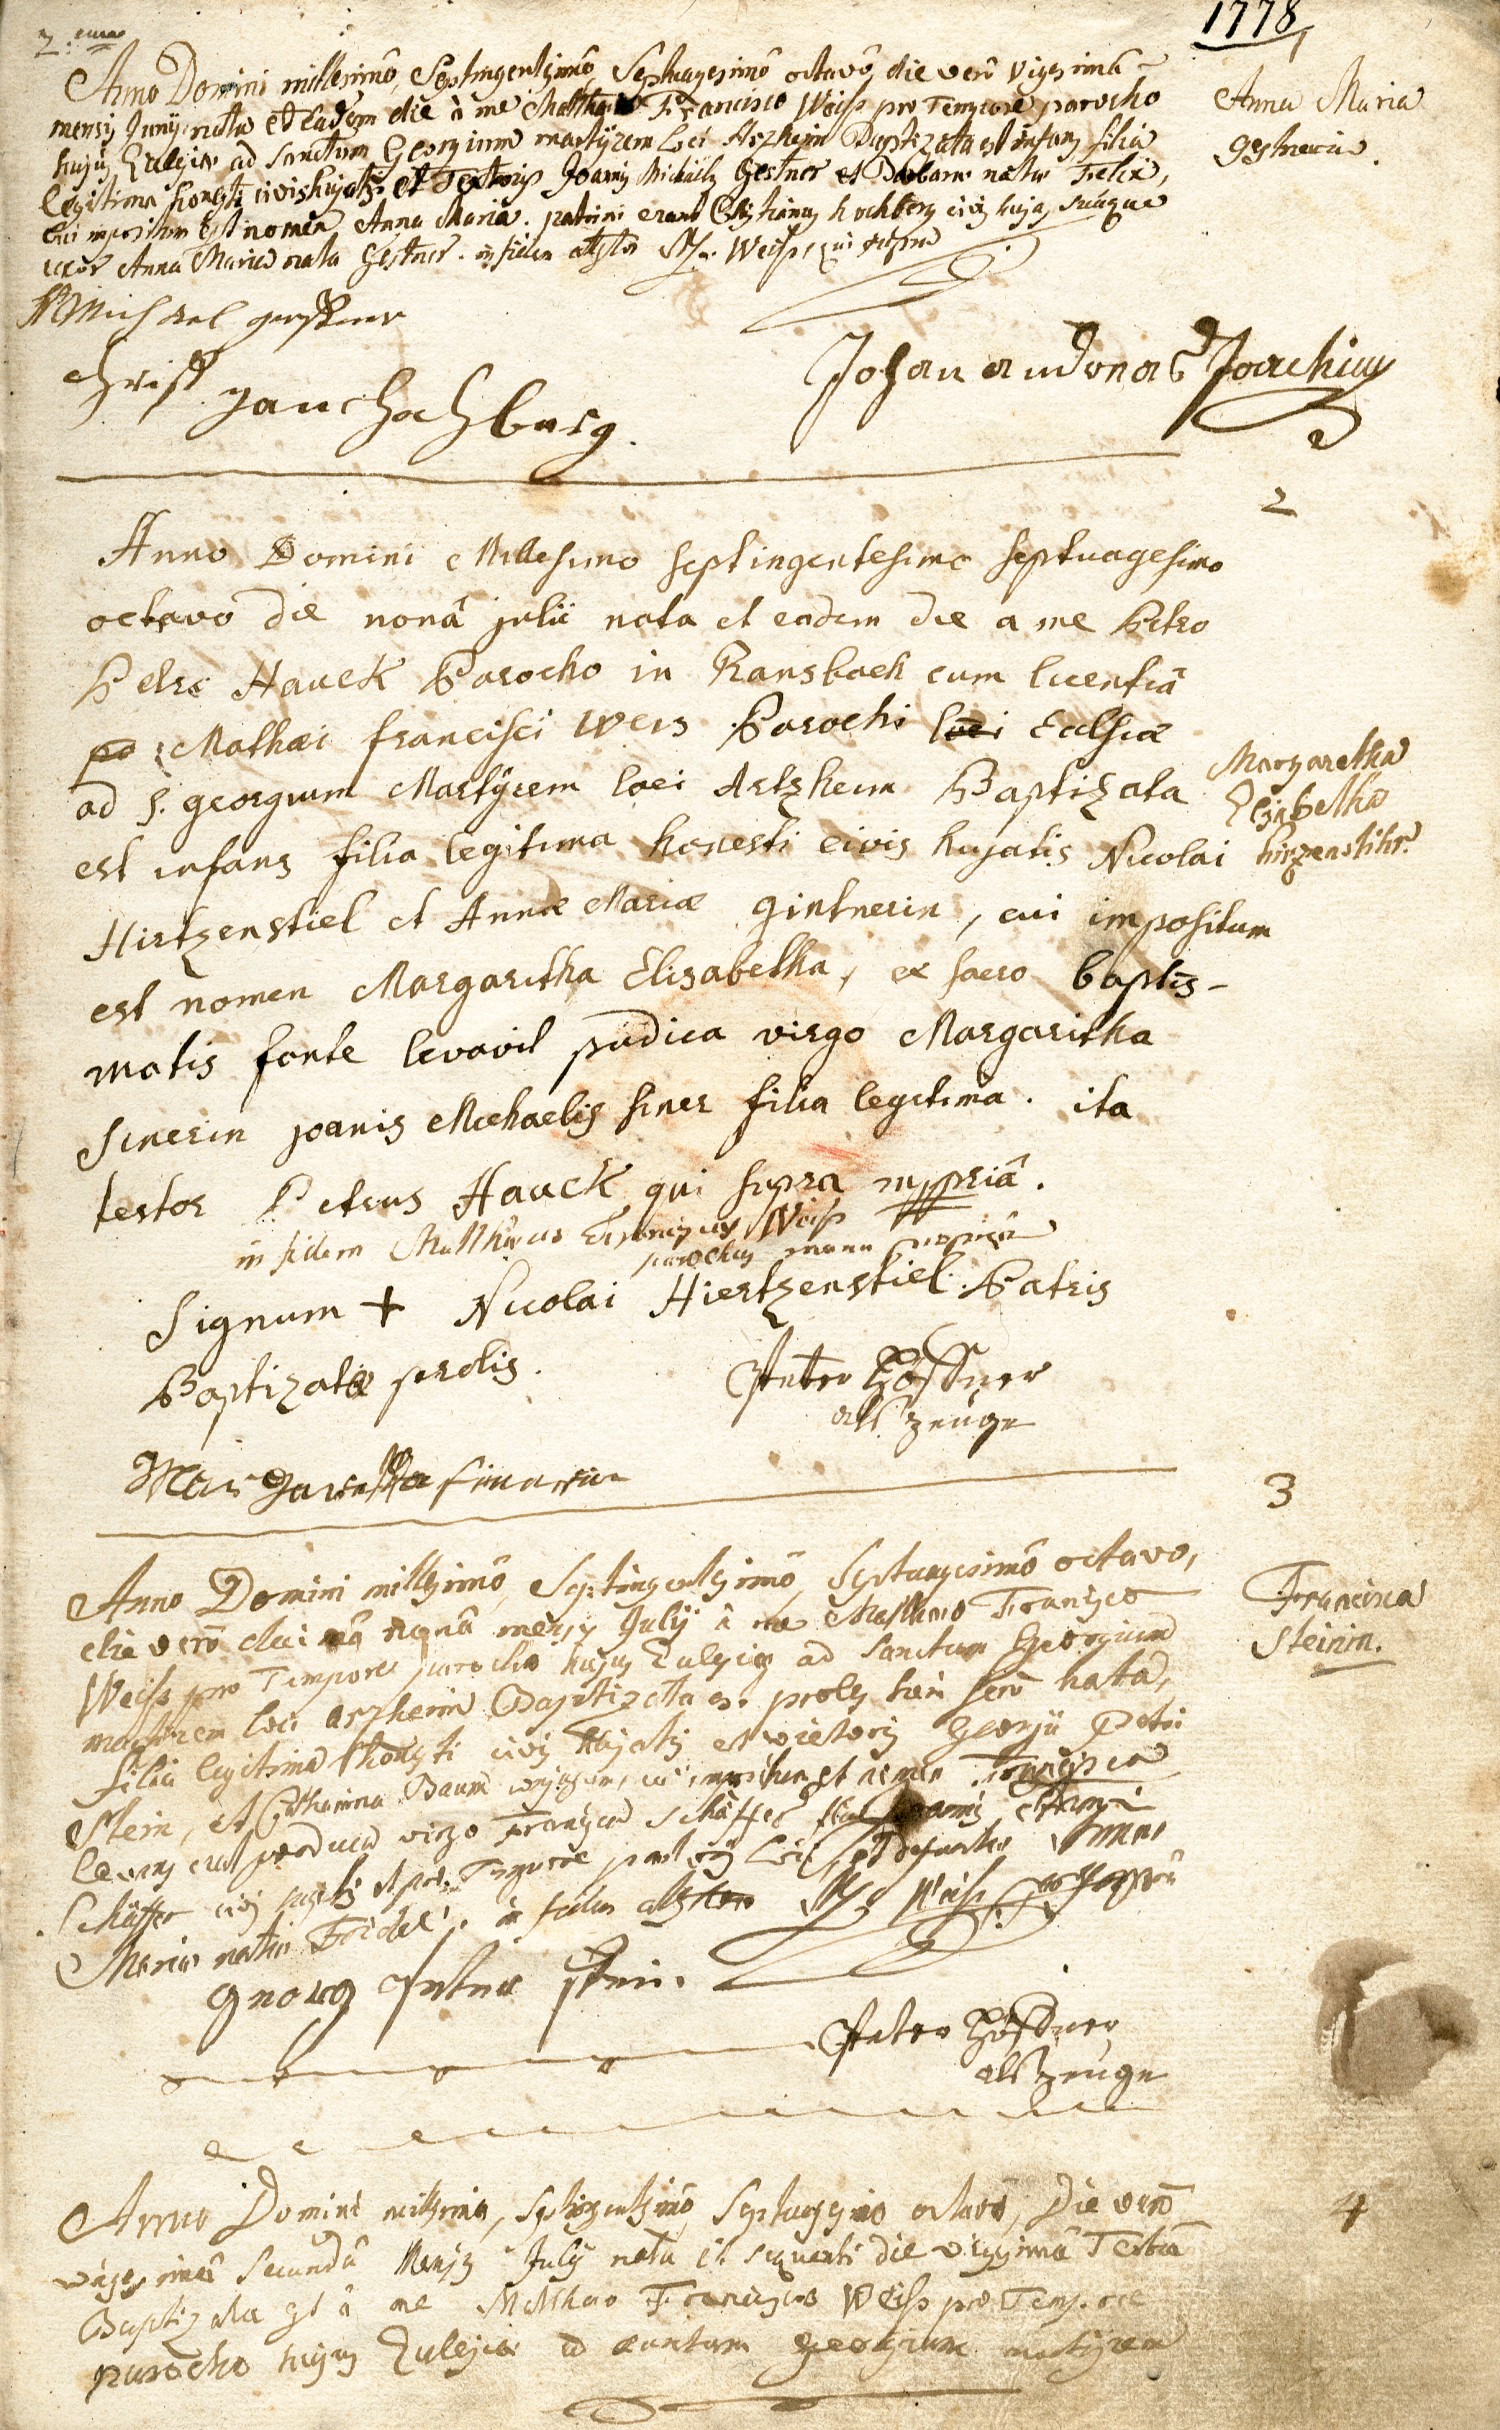 1778
2.
Anno Domini millesimô, Septingentesimô, Septuagesimô octavô, die verô vigesimâ
mensis Junÿ nata et eadem die à me Matthaeo Francisco Weiss pro Tempore parocho
hujus Ecclesiae ad sanctum Georgium martÿrem loci Arzheim Baptizata est infans filia
legitima honesti civis hujatis et Textoris Joannis Michaelis Gestner et Barbarae natae Felix,
cui impositum est nomen Anna Maria. patrini erant Christianus Hochberg civis hujas suaque
uxor Anna Maria nata Gestner. in fidem testor M. F. Weiss qui supra
Anna Maria
Gestnerin.
Michael
Johan Joachim
Christ
2
Anno Domini Millesimo septingentesimo septuagesimo
octavo die nonâ julii nata et eadem die a me Petro
Petro Hauck Parocho in Ransbach cum licentiâ
Mathaei francisci Weis Parochi loci Eccl͞siae
ad s. georgium Martÿrem loci Artzheim Baptizata
est infans filia legitima honesti civis hujatis Nicolai
Hirtzenstiel et Annae Mariae gintnerin, cui impositum
est nomen Margaritha Elisabetha, ex sacro baptis-
matis fonte levavit pudica virgo Margaritha
Sinerin joanis Michaelis siner filia legitima. ita
testor Petrus Hauck qui supra mppriâ.
in fidem Matthaeus Franciscus Weiss
parochus manu propriâ
Margaretha
Elisabetha
Signum + Nicolai Hiertzenstiel Patris
Baptizatae prolis.
Peter
als zeuge
Margaretha sinerin
3
Anno Domini millesimô, Septingentesimô, Septuagesimô octavo,
die verô decimâ nonâ mensis Julÿ â me Matthaeo Francisco
Weiss pro Tempore parocho hujus Ecclesiae ad Sanctum Georgium
martÿrem loci arzheim Baptizata est proles heri serô nata,
filia legitima honesti civis hujatis et vietoris Georgii Petri
Stein, et Catharina Baum conjugum, cui impositum est nomen Francisca
levans erat pudica virgo Francisca Schäffer
Schäffer civis hujatis et pro Tempore loci et defunctae Annae
Maria natae in fidem testor M. F. Weiss
Francisca
Steinin.
Georg Peter Stein.
Peter
als zeuge
4
Anno Domini millesimo, septingentesimô, septuagesimo octavô, Die verô
vigesimâ secundâ mensis Julÿ nata et sequenti die vigesimâ Tertiâ
Baptizata est â me Matthaeo Francisco Weiss pro Tempore
parocho hujus Ecclesiae ad sanctum georgium martÿrem